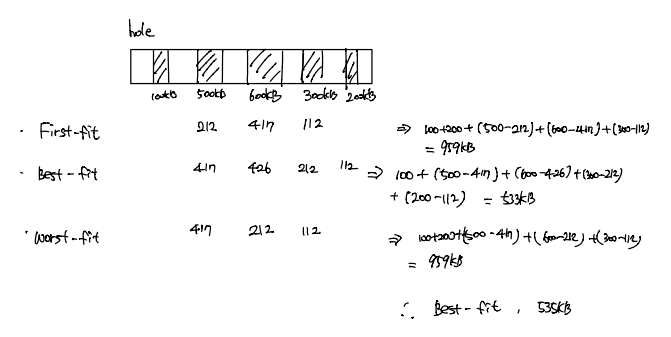 hole
100kB 500kB 600kB 300kB 200kB
· First-fit 212 417 112 ⇒ 100+200+(500-212)+(600-417)+(300-112)
= 959kB
· Best-fit 417 426 212 112 ⇒ 100+(500-417)+(600-426)+(300-212)
+(200-112) = 533kB
· Worst-fit 417 212 112 ⇒ 100+200+(500-417)+(600-212)+(300-112)
= 959kB
∴ Best-fit, 535kB